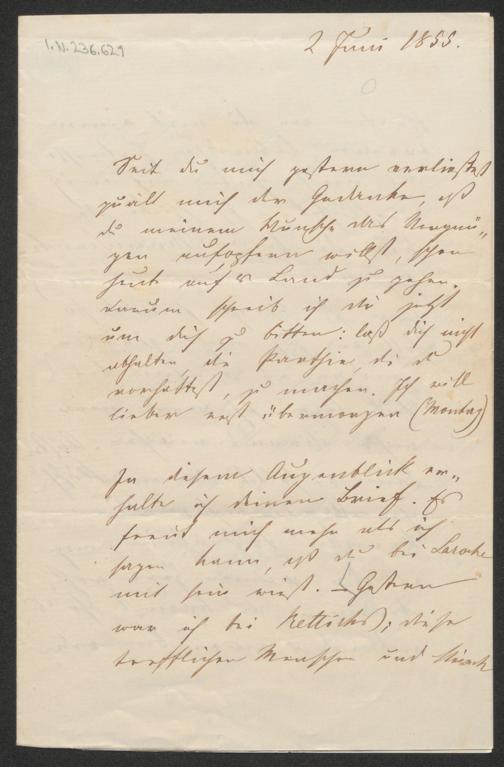 I.N. 236.629
2 Juni 1855.
Seit du mich gestern verließest
quält mich der Gedanke, daß
du meinem Wunsche das Vergnü„
gen aufopfern willst, schon
heute auf's Land zu gehen.
Darum schreib ich dir jetzt
um dich zu bitten: laß dich nicht
abhalten die Parthie, die du
vorhattest, zu machen. Ich will
lieber erst übermorgen (Montag)
In diesem Augenblick er„
halte ich deinen Brief. Es
freut mich mehr als ich
sagen kann, daß du bei Laroche
mit sein wirst. – Gestern
war ich bei Rettichs; diese
trefflichen Menschen und